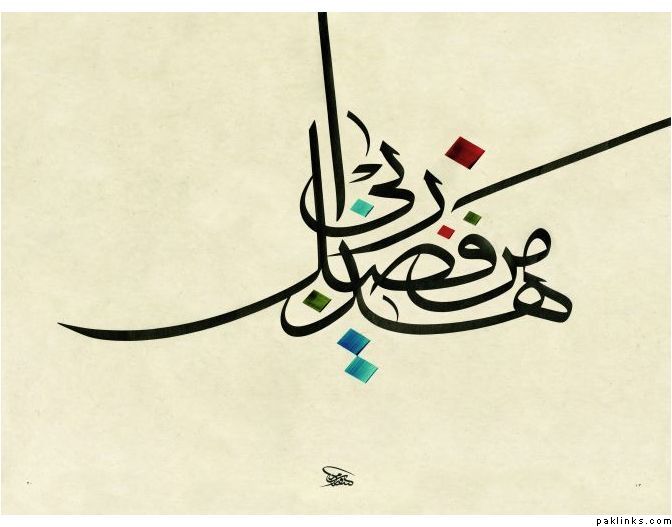 هذا من فضل ربي
paklinks.com